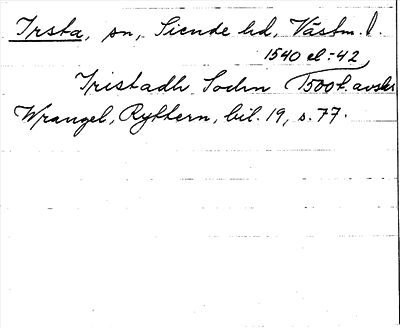 Irsta, sn, Siende hd, Västm. l.
1540 el. -42
Iristadh Sochn 1500 t. avskr
Wrangel, Ryttern, bil. 19, s. 77.